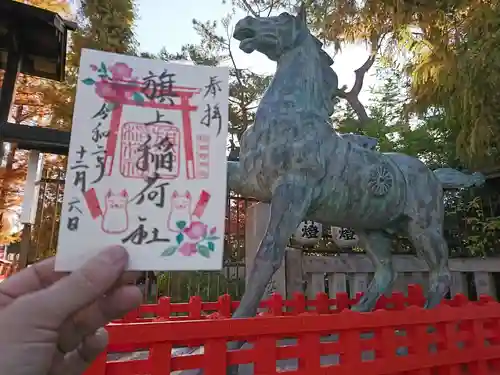 奉拝
旗上稲荷社
令和二年
十二月六日
燈
燈